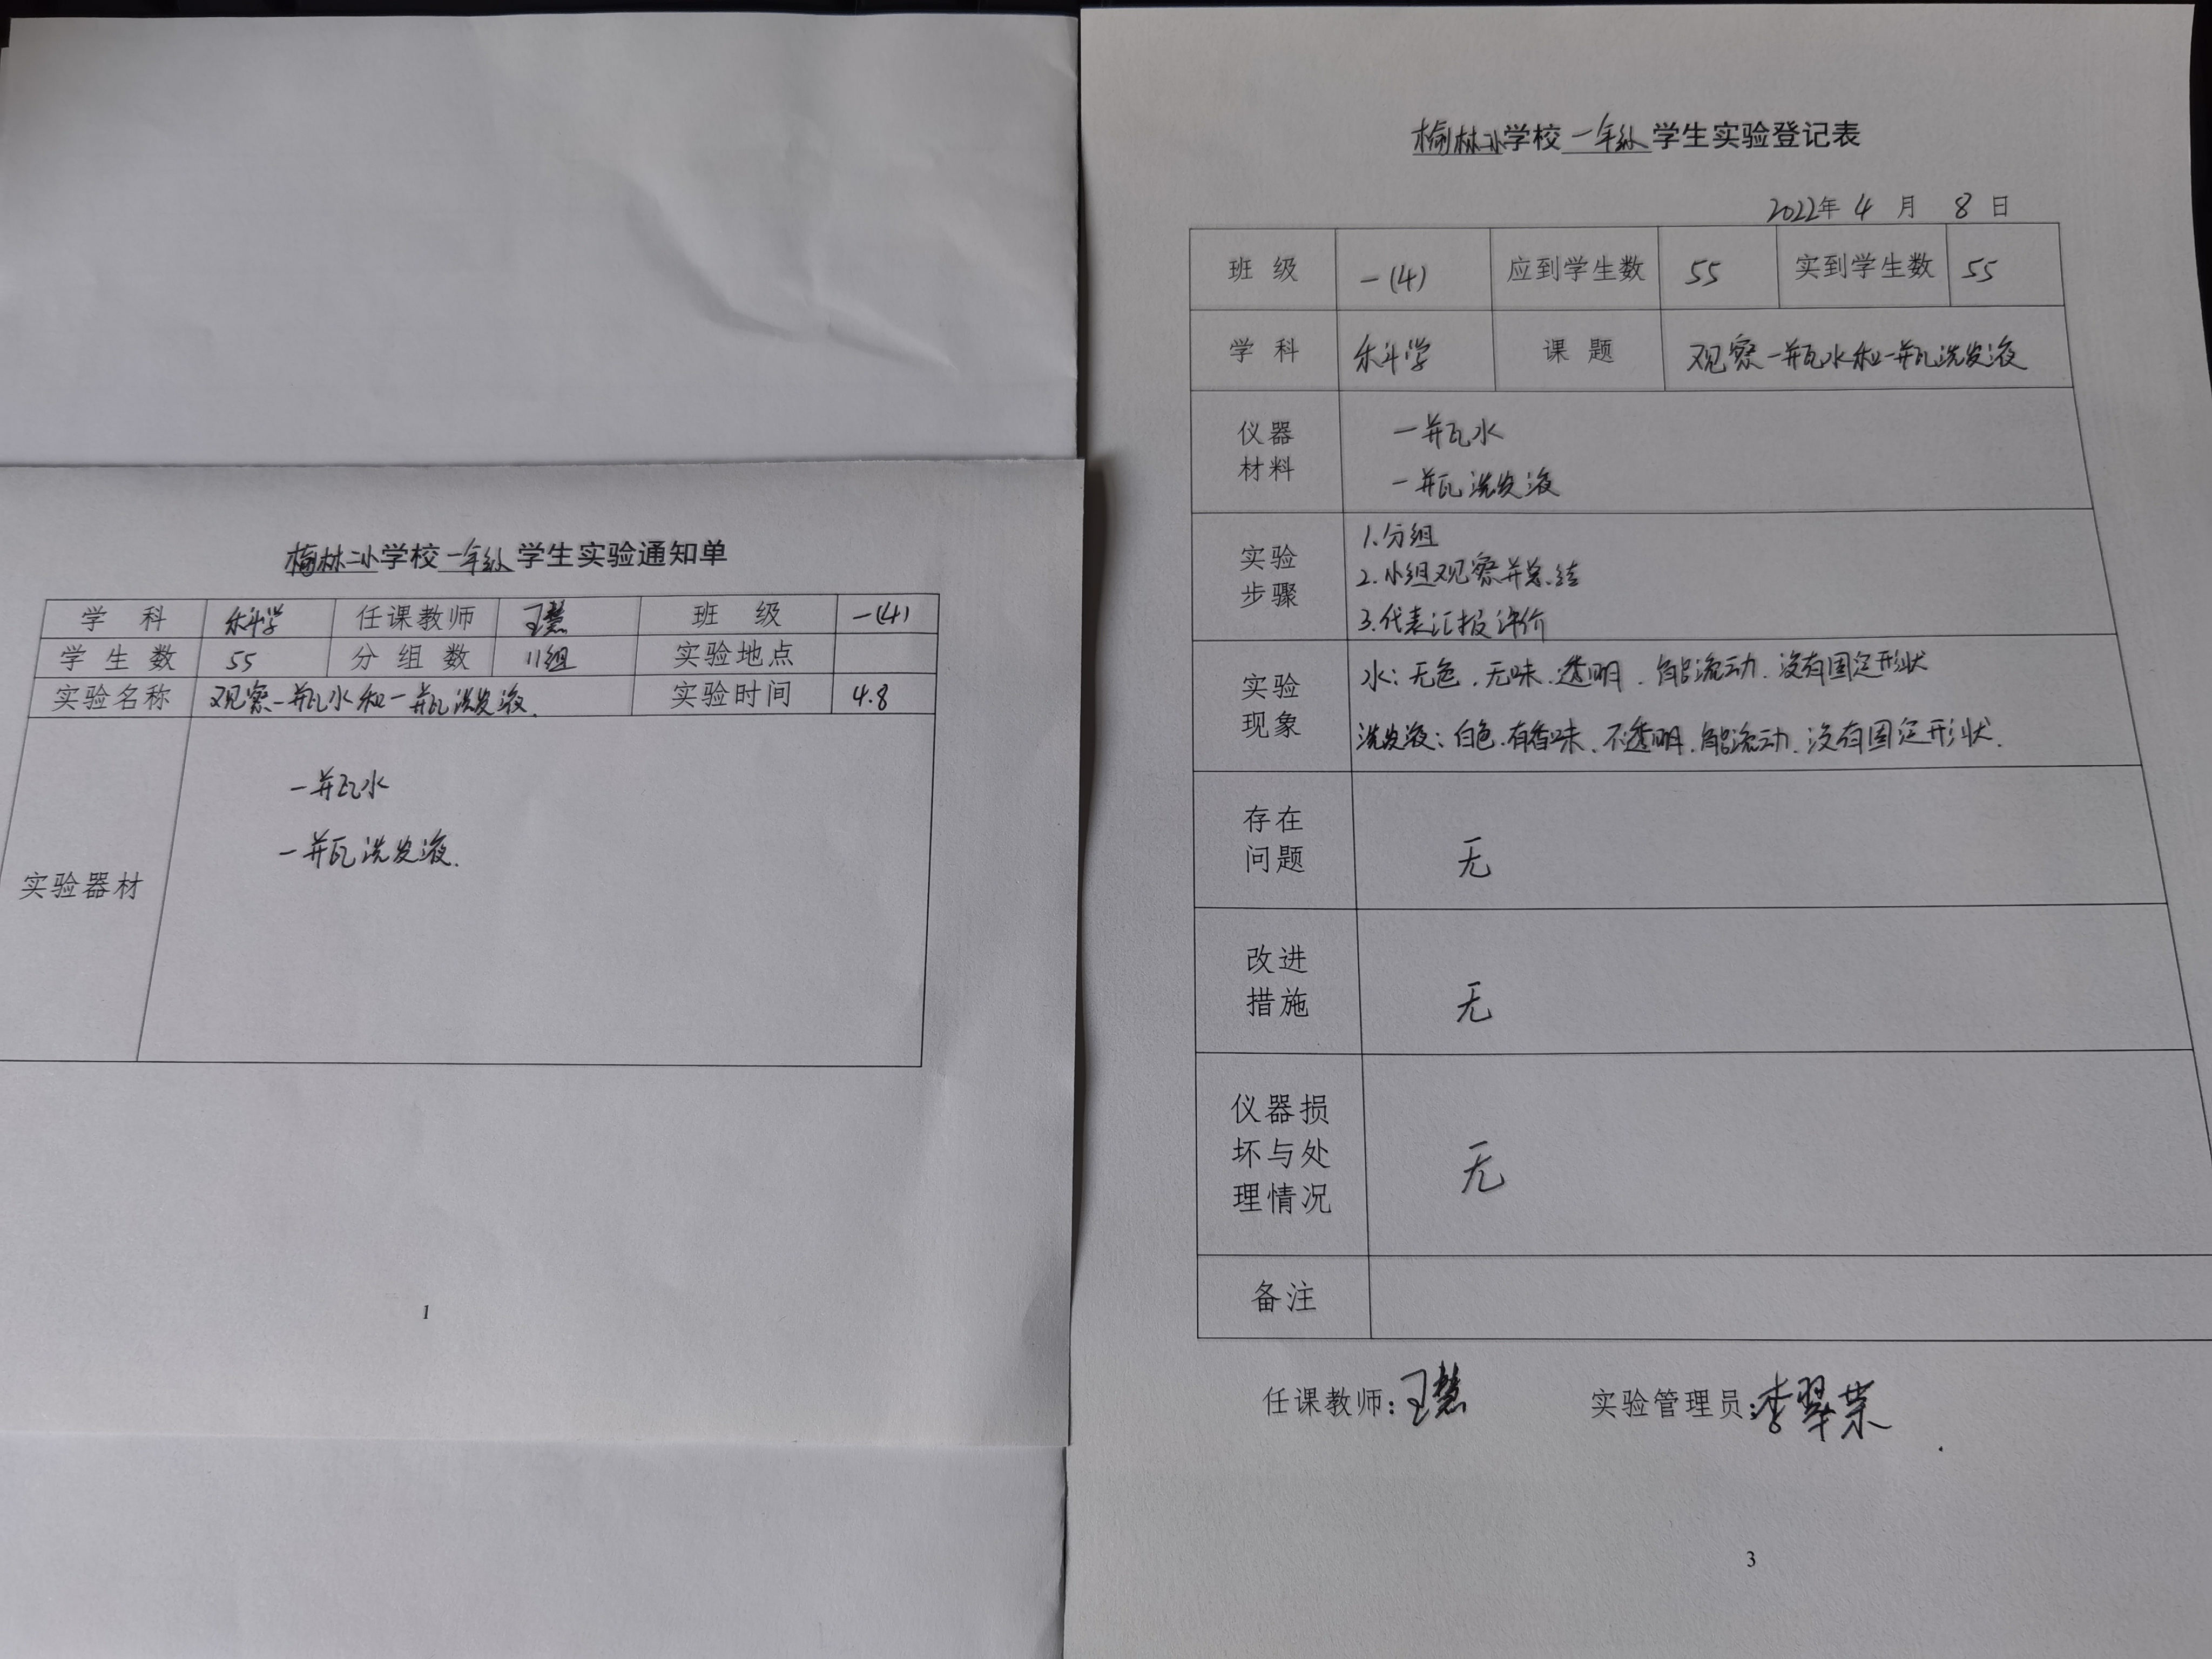 榆林二小学校一年级学生实验通知单
学 科 科学 任课教师 王慧 班 级 一(4)
学 生 数 55 分 组 数 11组 实验地点
实验名称 观察一瓶水和一瓶洗发液. 实验时间 4.8
实验器材
一瓶水
一瓶洗发液.
1
榆林二小学校一年级学生实验登记表
2022年 4 月 8 日
班 级 一(4) 应到学生数 55 实到学生数 55
学 科 科学 课 题 观察一瓶水和一瓶洗发液
仪器
材料
一瓶水
一瓶洗发液
实验
步骤
1.分组
2.小组观察并总结
3.代表汇报评价
实验
现象
水:无色、无味、透明、能流动、没有固定形状
洗发液:白色、有香味、不透明、能流动、没有固定形状.
存在
问题
无
改进
措施
无
仪器损
坏与处
理情况
无
备注
任课教师:王慧 实验管理员:李翠荣
3